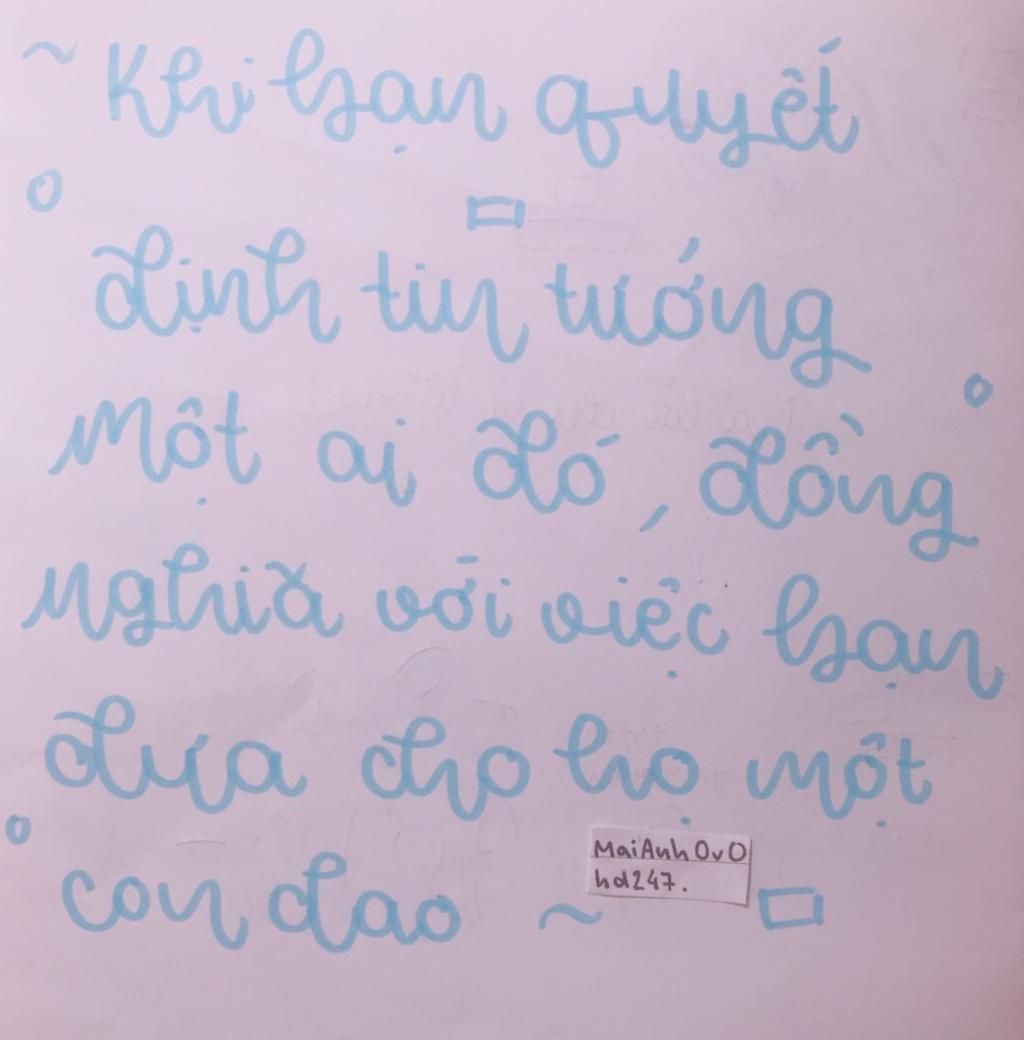 ~ Khi bạn quyết
định tin tướng
một ai đó, đồng
nghĩa với việc bạn
đưa cho họ một
con dao ~
MaiAnh OvO
hd247.